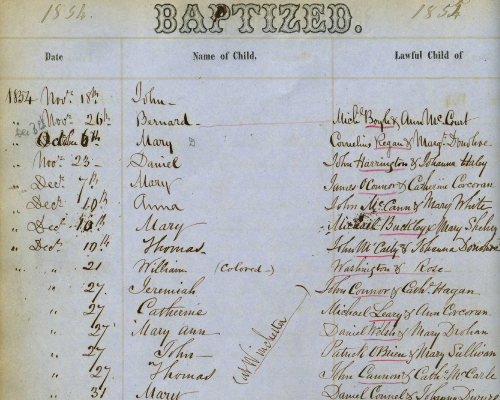 1854 BAPTIZED. 1854
Date Name of Child. Lawful Child of
1854 Novr. 18th John
" Novr. 26th Bernard Michl. Boyle & Ann McCourt
Decr 6th October 6th Mary Cornelius Regan & Margt. Donohoe
" Novr. 23 Daniel John Harrington & Johanna Haley
" Decr. 7th Mary James OConnor & Catherine Corcoran
" Decr. 10th Anna John McCann & Mary White
" Decr. 10th Mary Michael Buckley & Mary Sheehy
" Decr. 10th Thomas John McCarty & Johanna Donohoe
" " 21 William (Colored) Washington & Rose
" 27 Jeremiah John Connor & Cathe. Hagan
" 27 Catherine Michael Leary & Ann Corcoran
" 27 Mary Ann Daniel & Mary Drohan
" 27 John Patrick OBrien & Mary Sullivan
" 27 Thomas John Cannon & Cathe. McCarle
" 31 Mary Daniel Connel & Johanna
(at Winchester)